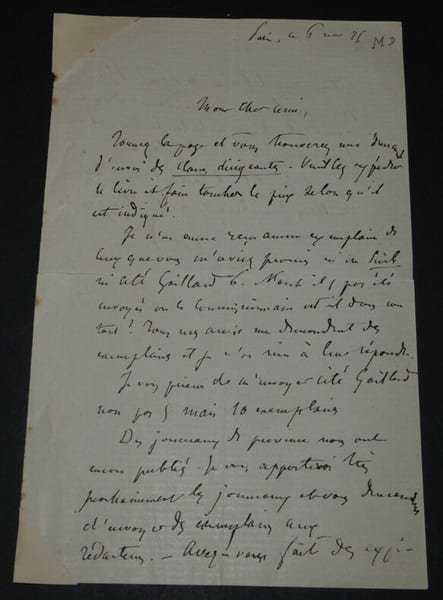 Paris, le 6 nov 75
Mon cher ami,
Tournez la page et vous trouverez une demande
d'envoi des Classes dirigeantes. Veuillez expédier
le livre et faire toucher le prix selon qu'il
est indiqué.
Je n'ai encore reçu aucun exemplaire de
ceux que vous m'aviez promis ni au Siècle
ni cité Gaillard 6. N'ont-ils pas été
envoyés ou le commissionnaire est-il dans son
tort? Tous mes amis me demandent des
exemplaires et je n'ai rien à leur répondre.
Je vous prierai de m'envoyer cité Gaillard
non pas 5 mais 10 exemplaires
Des journaux de province nous ont
encore publié. Je vous apporterai très
prochainement les journaux et vous demanderai
d'envoyer des exemplaires aux
rédacteurs. — Avez-vous fait des expé-